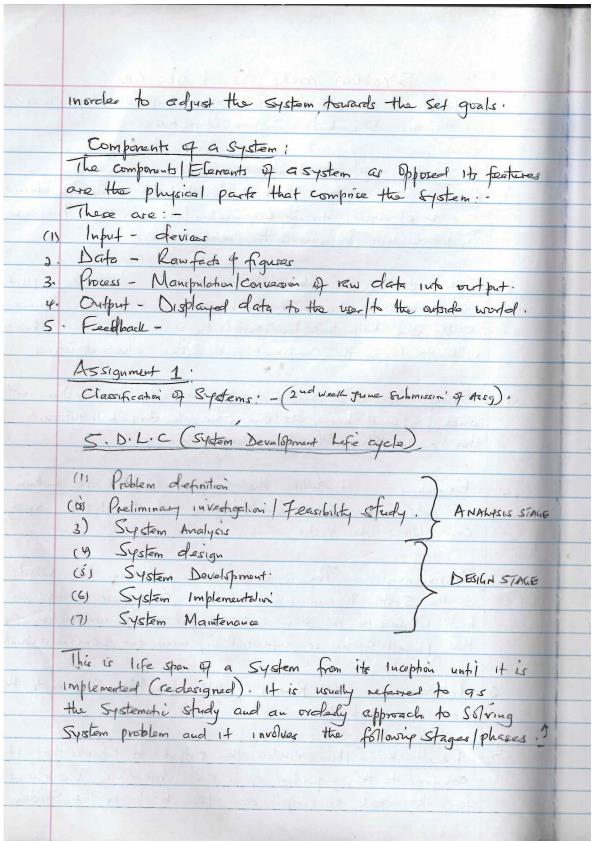 inorder to adjust the system towards the set goals.
Components of a System:
The components/Elements of a system as opposed its features
are the physical parts that comprise the system..
These are:-
(1) Input - devices
2. Data - Raw facts & figures
3. Process - Manipulation/Conversion of raw data into output.
4. Output - Displayed data to the user/to the outside world.
5. Feedback -
Assignment 1.
Classification of Systems. - (2nd week June Submission of Assg).
S.D.L.C (System Development Life cycle)
(1) Problem definition
(2) Preliminary investigation/Feasibility study.
3) System Analysis
ANALYSIS STAGE
(4) System design
(5) System Development.
(6) System Implementation
(7) System Maintenance
DESIGN STAGE
This is life span of a system from its inception until it is
implemented (redesigned). It is usually referred to as
the systematic study and an orderly approach to solving
System problem and it involves the following stages/phases. ↑